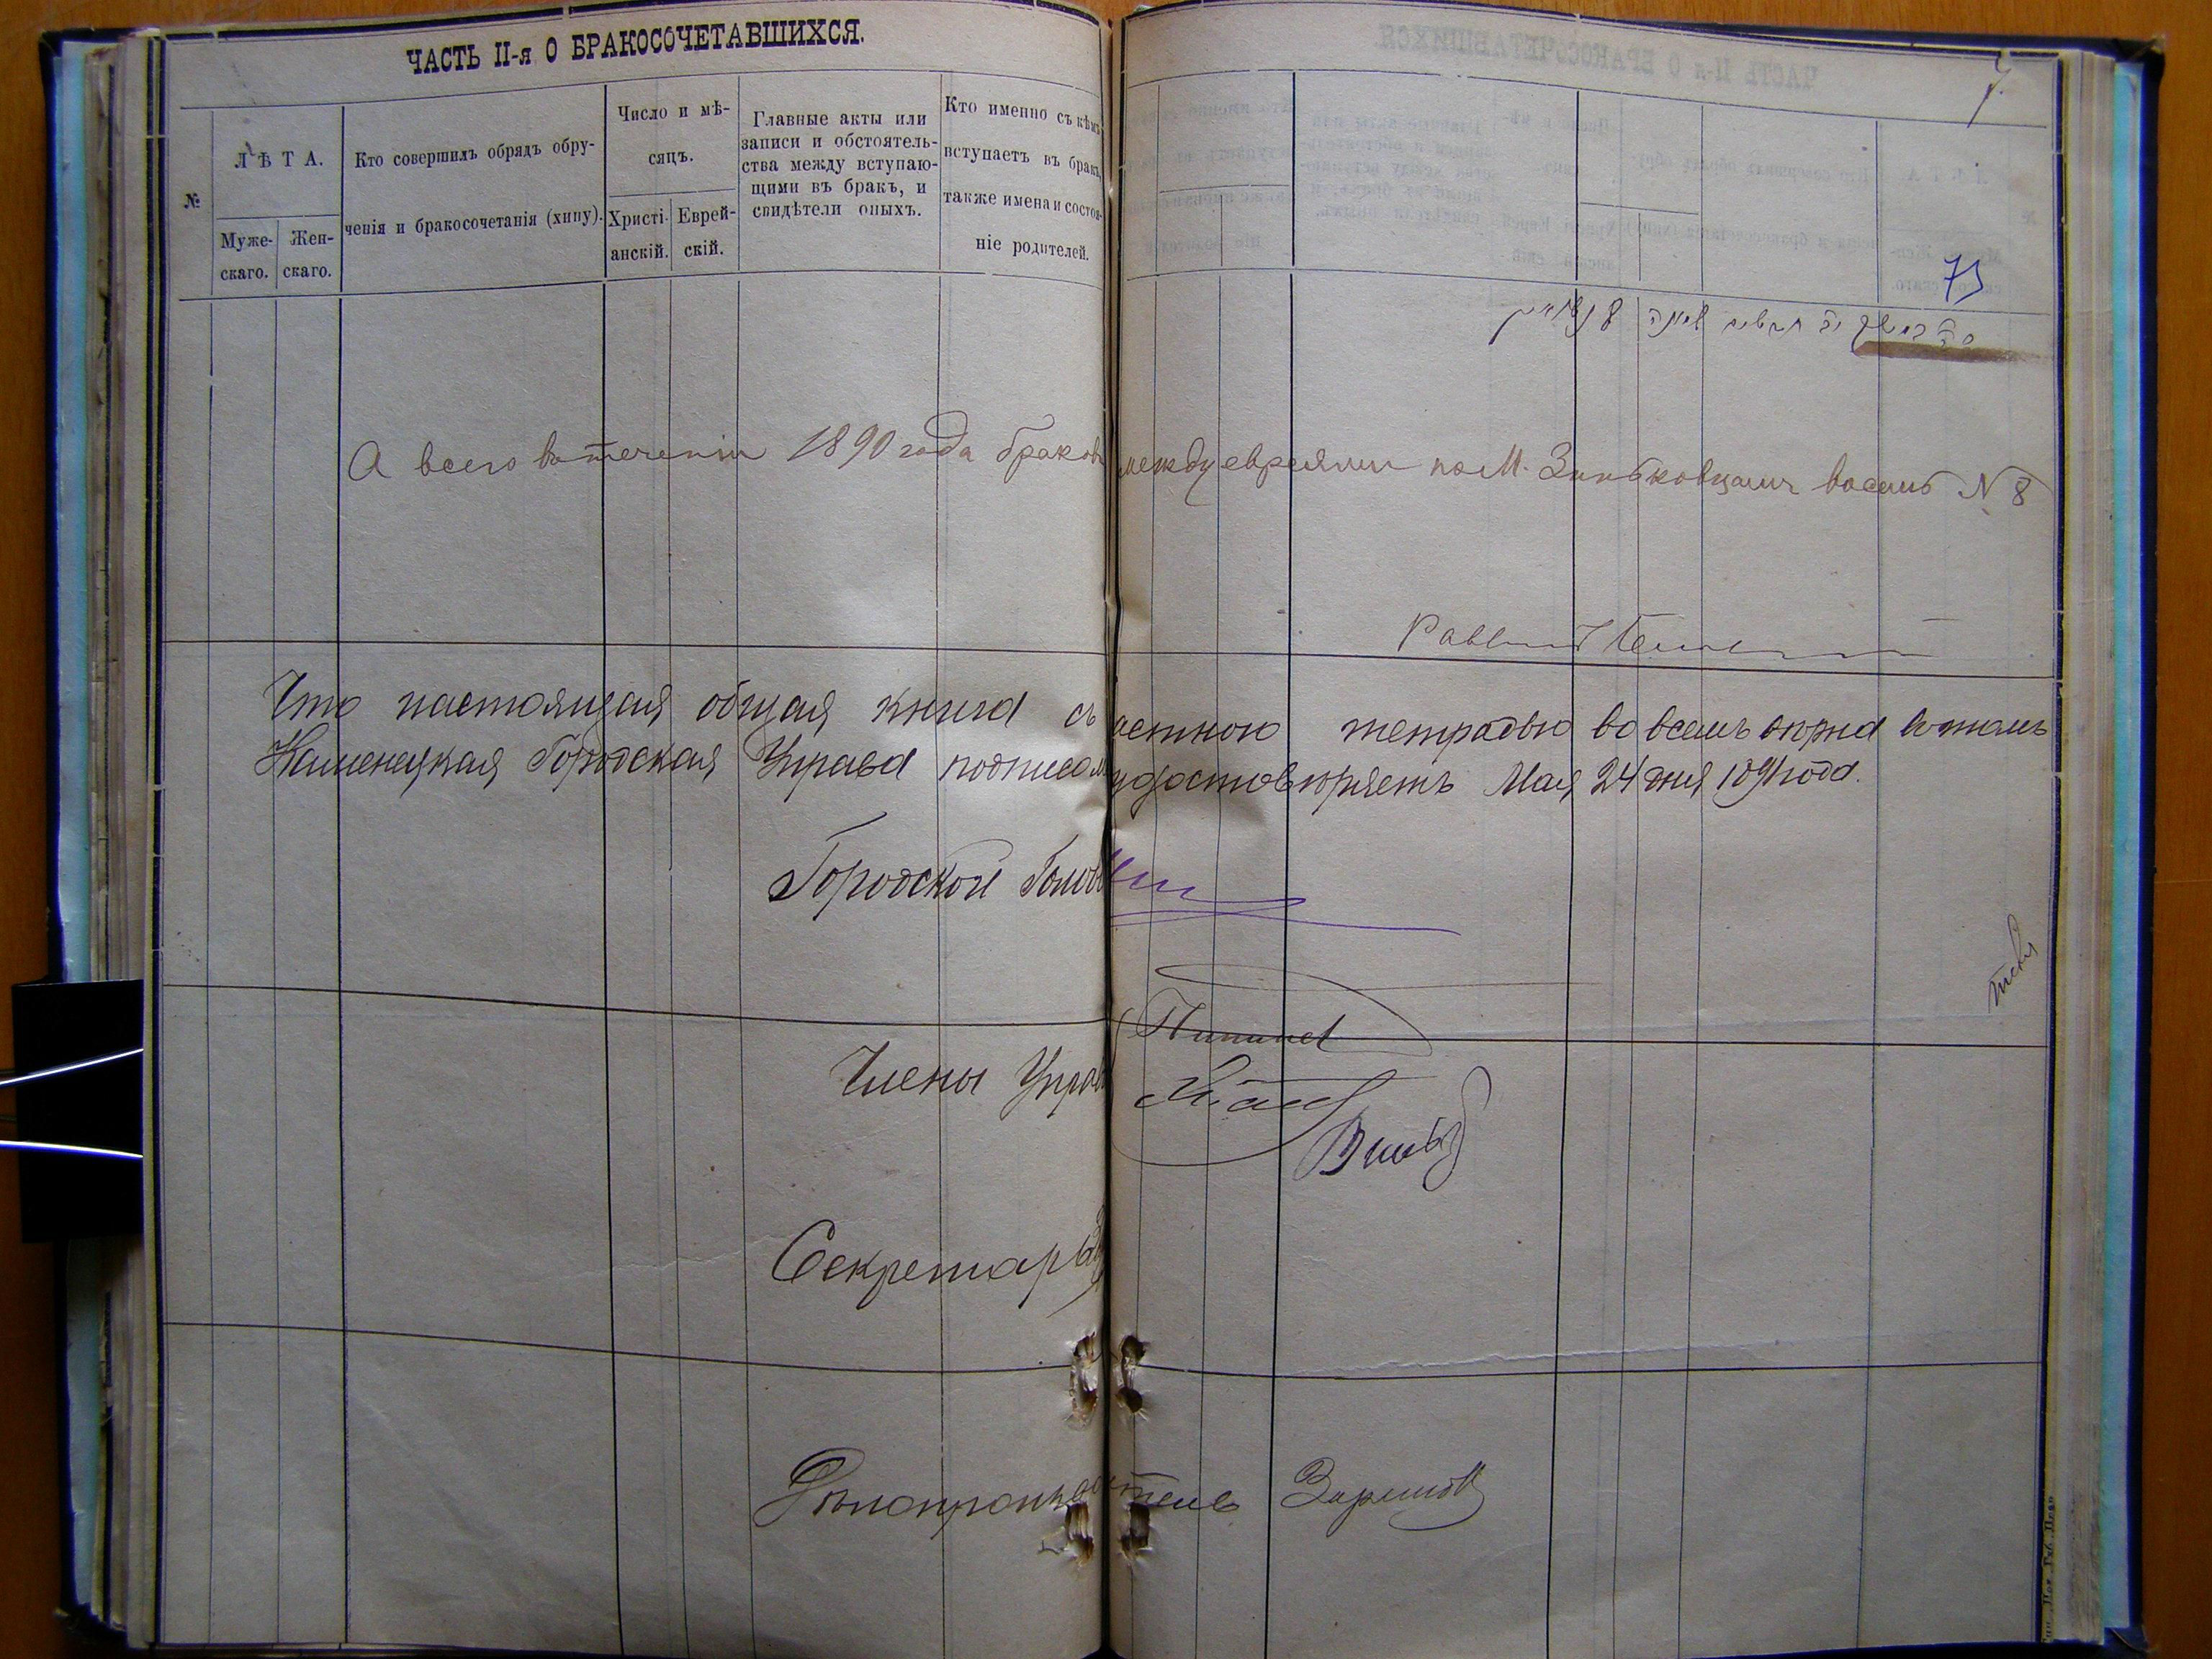 ЧАСТЬ II-я О БРАКОСОЧЕТАВШИХСЯ.
№
ЛѢТА.
Муже-
скаго.
Жен-
скаго.
Кто совершилъ обрядъ обру-
ченія и бракосочетанія (хипу).
Число и мѣ-
сяцъ.
Христі-
анскій.
Еврей-
скій.
Главные акты или
записи и обстоятель-
ства между вступаю-
щими въ бракъ, и
свидѣтели оныхъ.
Кто именно съ кѣмъ
вступаетъ въ бракъ,
также имена и состоя-
ніе родителей.
73
А всего втеченіи 1890 года браковъ между евреями по М. Зиньковцамъ восемь N 8
Раввинъ
Что настоящая общая книга съ тетрадью во всемъ вѣрна въ томъ
Каменецкая Городская Управа подписомъ удостовѣряетъ Мая 24 дня 1891 года.
Городской Голова
Члены Управы
Секретарь
Дѣлопроизводитель